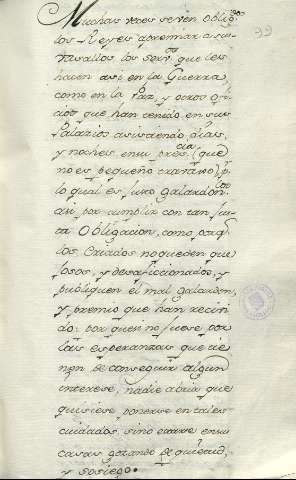 Muchas veces se ven oblig.dos
los Reyes a premiar a sus
vasallos los serv.cios que les
hacen asi en la Guerra
como en la Paz, y otros ofi-
cios que han tenido en sus
Palacios asistiendo dias,
y noches en su pres.cia (que
no es pequeño trabaxo) p.r
lo qual es justo galardon.los
asi por cumplir con tan jus-
ta Obligacion, como porq.
los Criados no queden que
josos, y desaficionados, y
publiquen el mal galardon,
y premio que han recivi
do: porque si no fuese por
las esperanzas que tie
nen de conseguir algun
interese, nadie abria que
quisiese ponerse en tales
cuidados, sino estarse en su
casas gozando de quietud,
y sosiego.
99